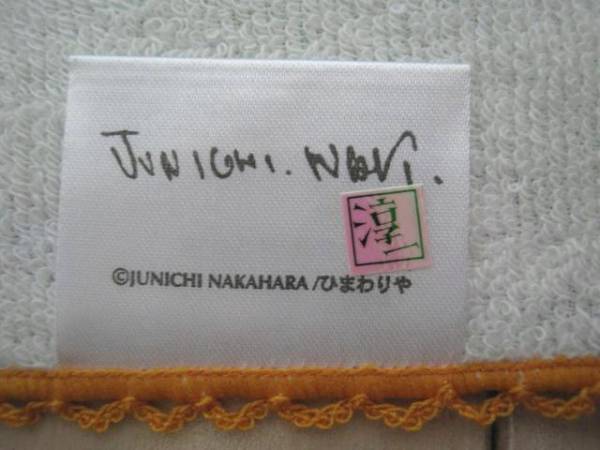 JUNICHI.
淳一
©JUNICHI NAKAHARA /ひまわりや